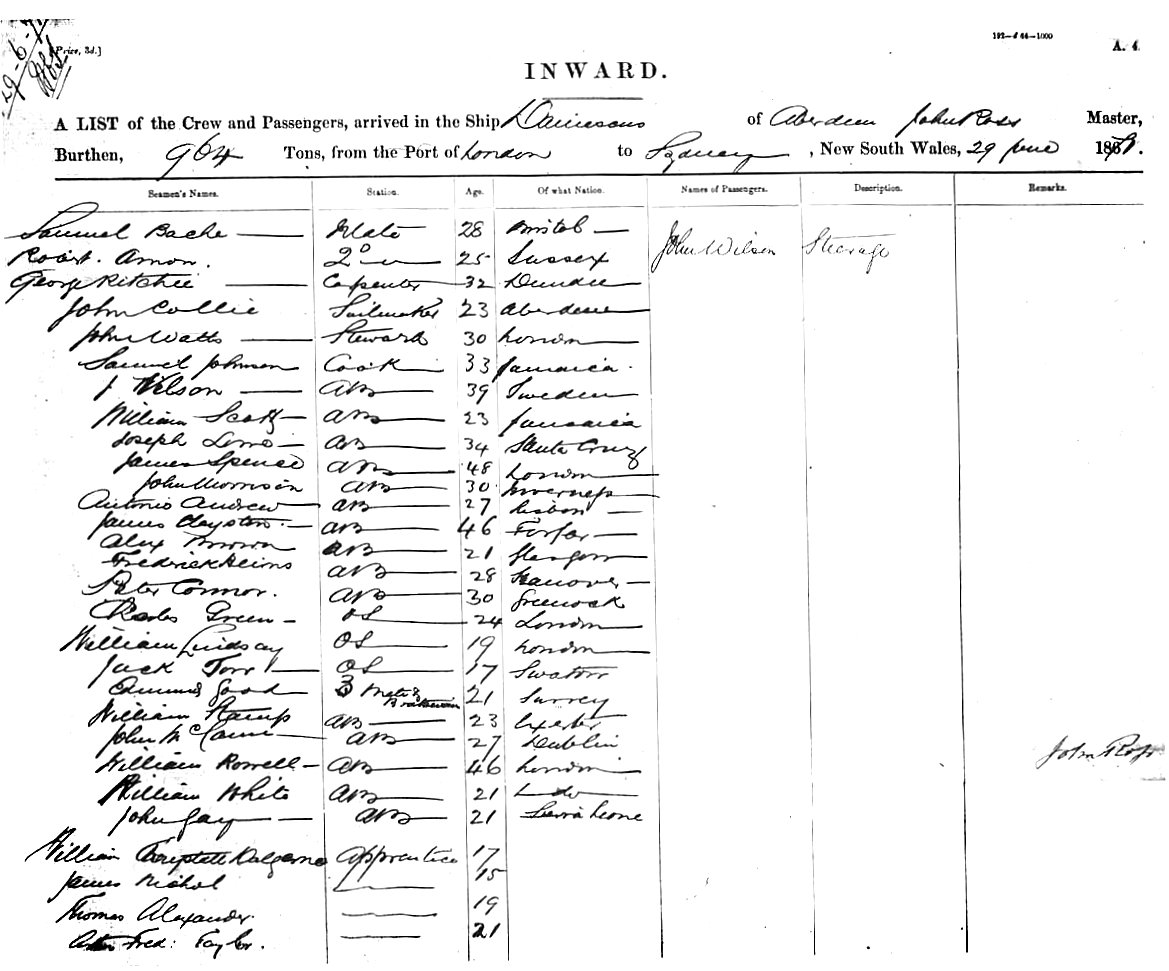 29-6-
[Price, 3d.]
192—d 44—1000
A. 4.
INWARD.
A LIST of the Crew and Passengers, arrived in the Ship of Aberdeen John Ross Master,
Burthen, 964 Tons, from the Port of London to Sydney, New South Wales, 29 June 187
Seamen's Names. Station. Age. Of what Nation. Names of Passengers. Description. Remarks.
Samuel Bache Mate 28 Bristol John Wilson Steerage
Robert Amon. 2o 25 Sussex
George Ritchie Carpenter 32 Dundee
John Collie Sailmaker 23 Aberdeen
John Watts Steward 30 London
Samuel Johnson Cook 33 Jamaica.
J Nelson AB 39 Sweden
William Scott AB 23 Jamaica
Joseph AB 34 Santa Cruz
James Spence AB 48 London
John Morrison AB 30 Inverness
Antonio Andrew AB 27 Lisbon
James Clayston AB 46 Forfar
Alex Brown AB 21 Glasgow
Frederick Heins AB 28 Hanover
Peter Connor. AB 30 Greenock
Charles Green OS 24 London
William Lindsay OS 19 London
Jack Torr OS 17 Swatow
Good 3 Mate & 21 Surrey
William Stamp AB 23 Exeter
John AB 27 Dublin
William Rowell AB 46 London
John Ross
William White AB 21 do
John Gay AB 21 Sierra Leone
William Dalgarno Apprentice 17
James Nichol 15
Thomas Alexander. 19
Fred: Taylor. 21